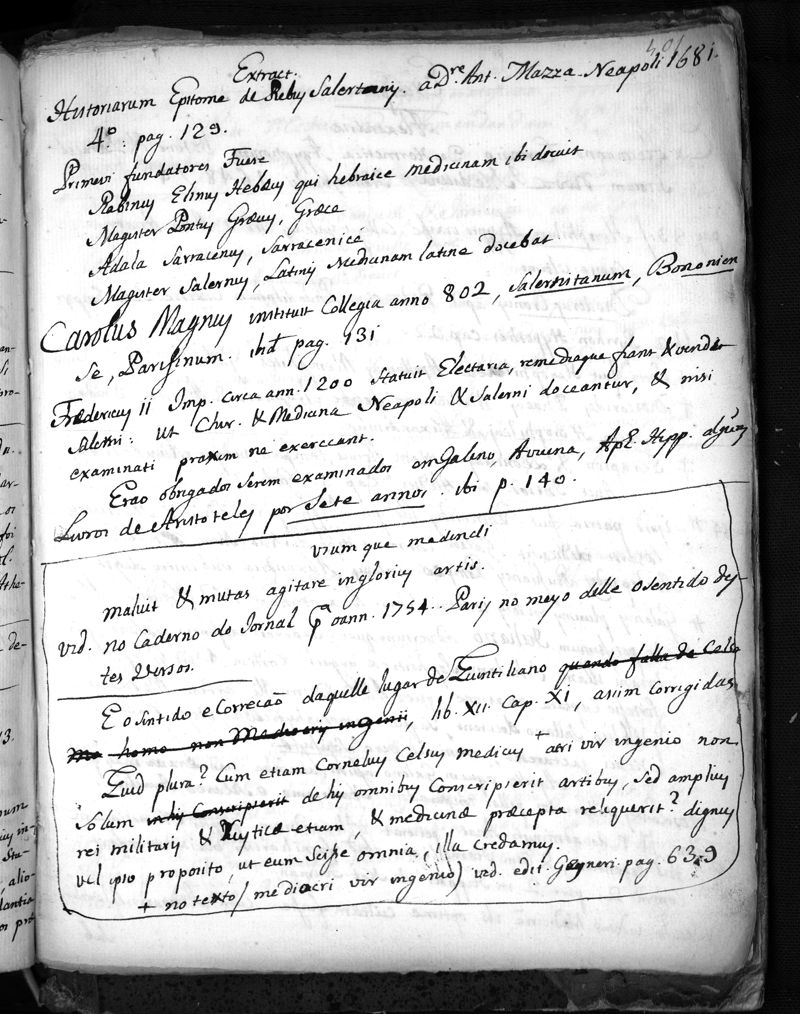 Extract.
Historiarum Epitome de Rebus Salertanis. a Dre. Ant. Mazza Neapoli 1681.
4º: pag. 129.
Primevi fundatores Fuere
Rabinus Elinus Hebæus qui hebraice medicinam ibi docuit
Magister Pontus Græcus, Græce
Adala Sarracenus, Sarracenice
Magister Salernus, Latinis Medicinam latine docebat
Carolus Magnus instituit Collegia anno 802, Salernitanum, Bononien
se, Parisinum. ibid pag. 131
Fredericus ii Imp. circa ann. 1200 Statuit Electaria, remediaque fiant & vendat
Salerni: ut Chir. & Medicina Neapoli & Salerni doceantur, & nisi
examinati praxim ne exerceant.
Erão obrigados serem examinados em Galeno, Avicena, Aph. Hipp. alguns
Livros de Aristoteles por Sete annos. ibi p. 140.
usum que medendi
maluit & mutas agitare inglorius artis.
vid. no Caderno do Jornal pº o ann. 1754. Paris no meyo delle o sentido des-
tes Versos.
E o sintido e Correcão daquelle lugar de Quintiliano quando falla de Celso
homo non Mediocris ingenii, lib. XII. Cap. XI, assim Corrigidas
Quid plura? Cum etiam Cornelius Celsus medicus + acri vir ingenio non
Solum in his Conscripserit de his omnibus Conscripserit artibus, Sed amplius
rei militaris & Rusticæ etiam, & medicinæ præcepta reliquerit? dignus
vel ipso proposito, ut eum Scisse omnia, illa Credamus.
+ no texto / mediocri vir ingenio / vid. edit. Gesneri. pag. 639